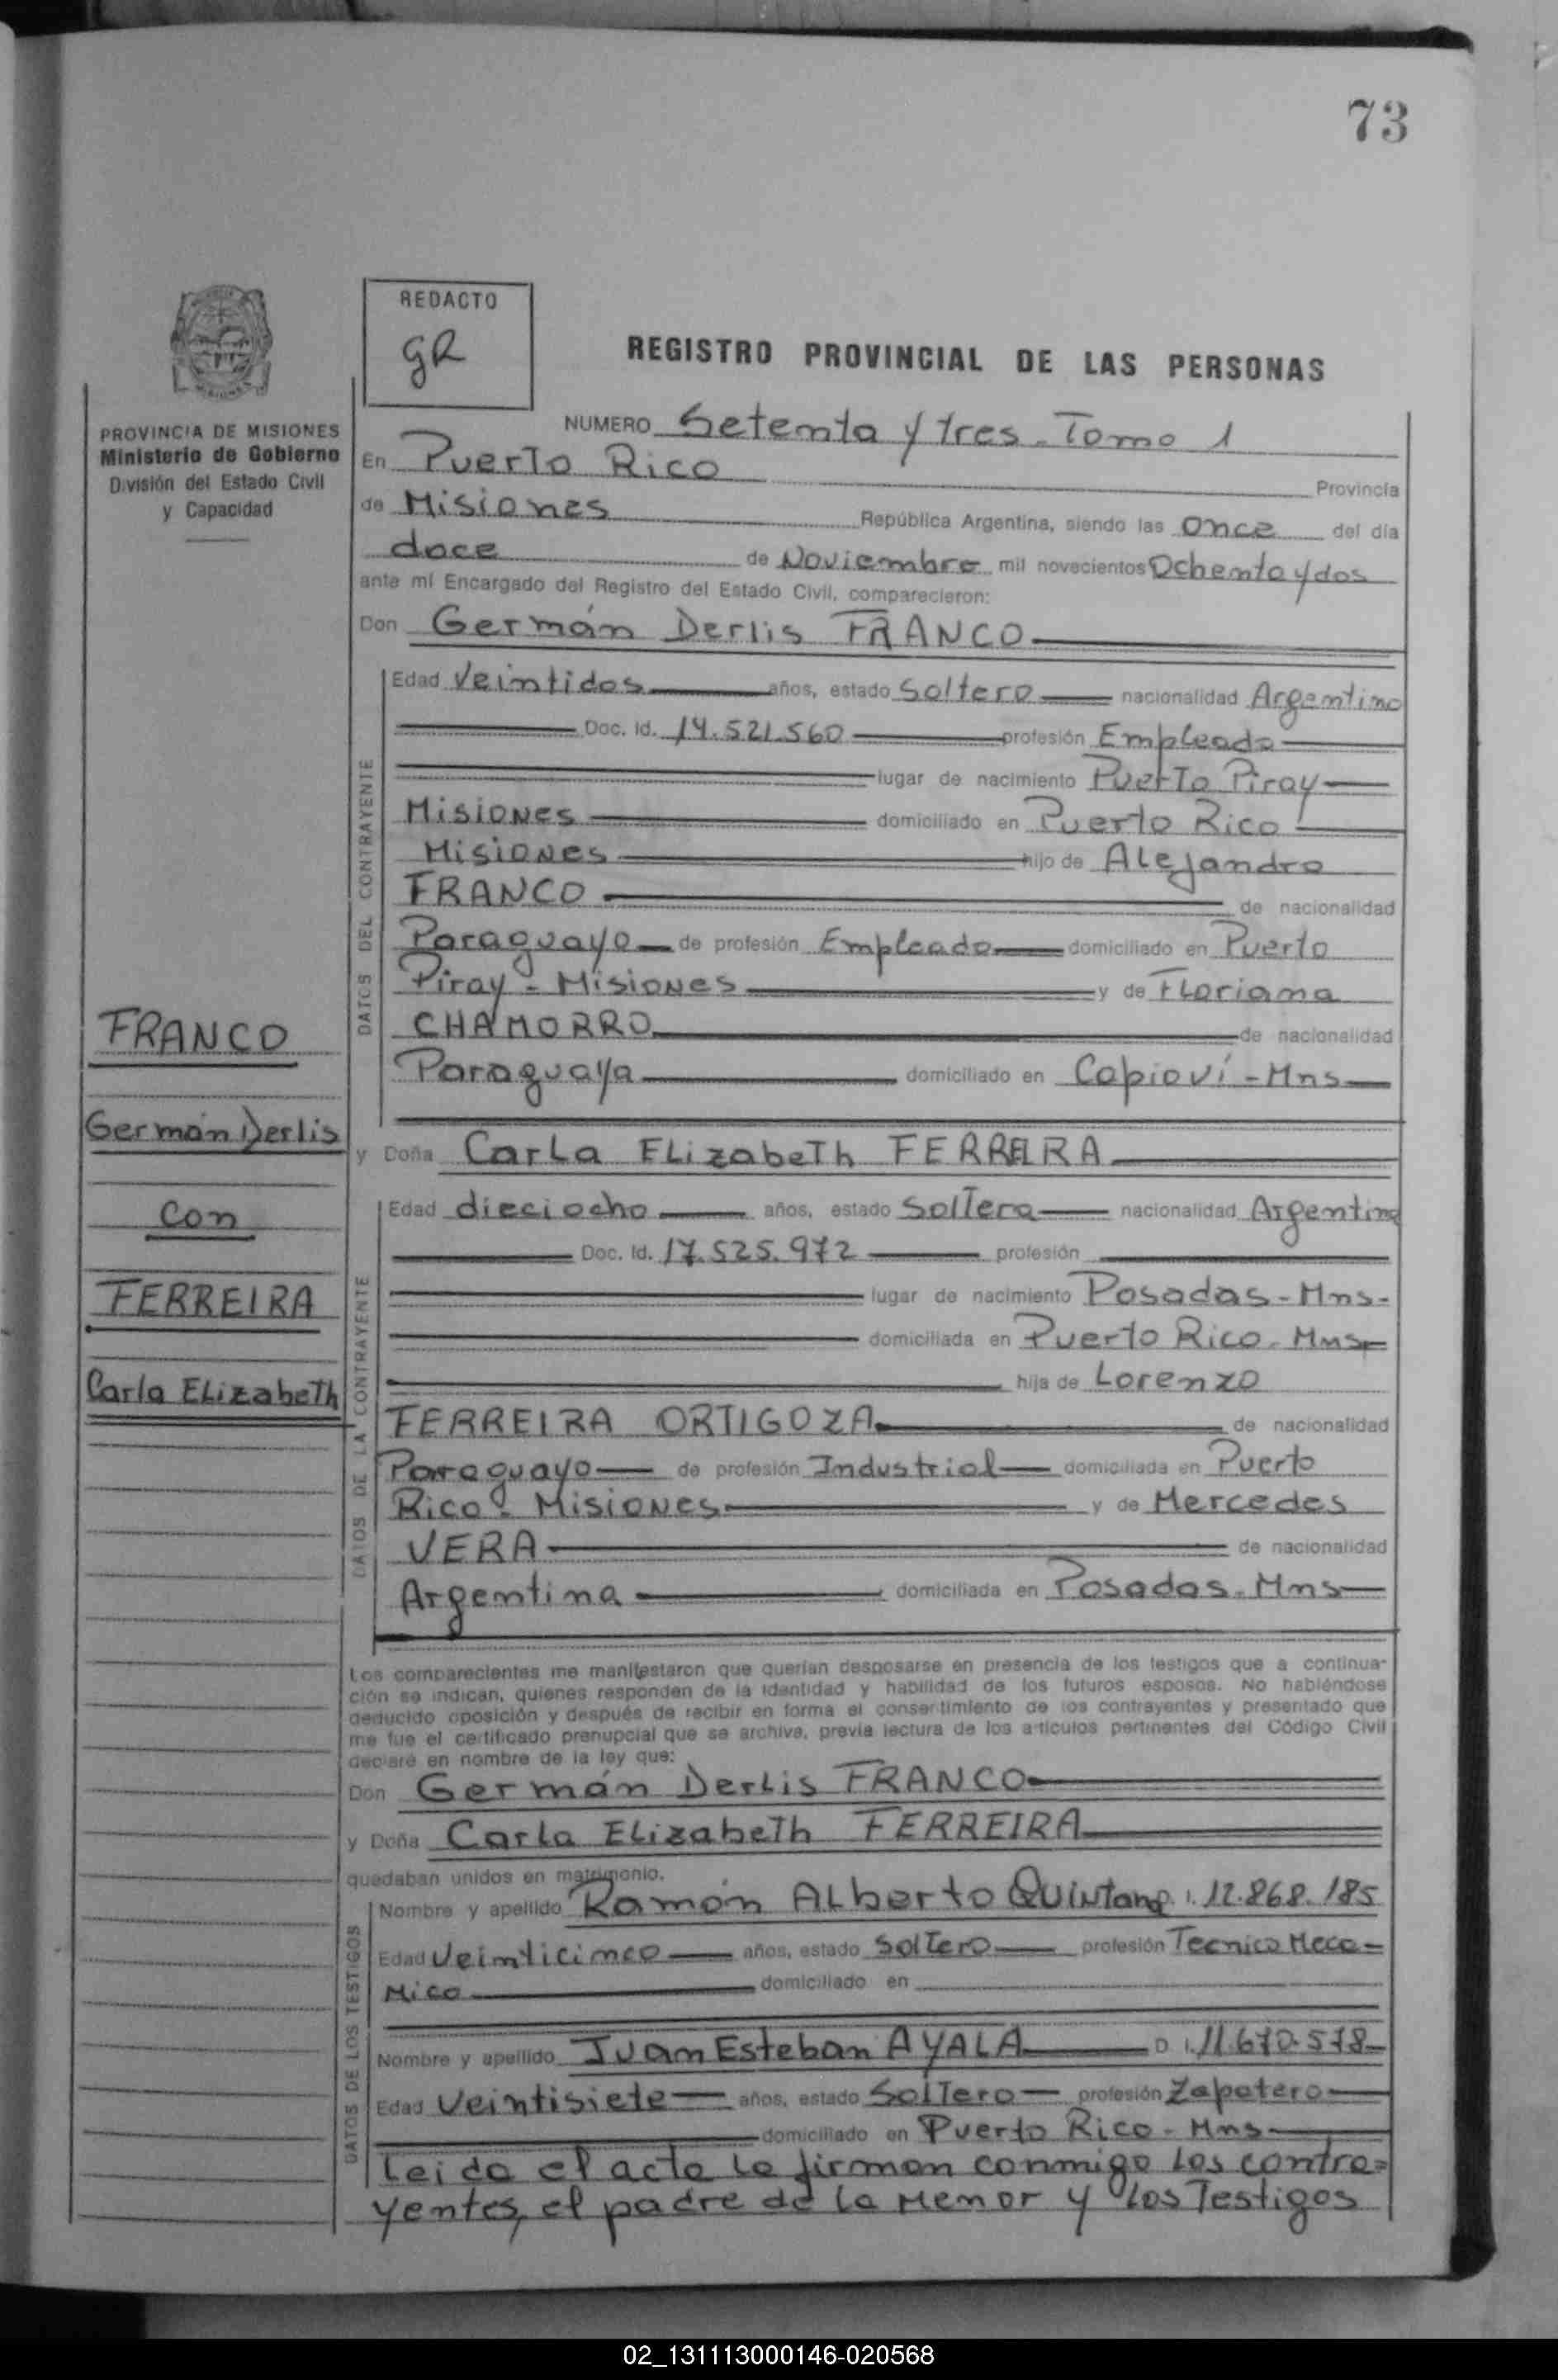 73
REDACTO
gR
REGISTRO PROVINCIAL DE LAS PERSONAS
PROVINCIA DE MISIONES
Ministerio de Gobierno
División del Estado Civil
y Capacidad
NUMERO Setenta y tres - Tomo 1
En Puerto Rico Provincia
de Misiones República Argentina, siendo las once del día
doce de Noviembre mil novecientos Ochenta y dos
ante mí Encargado del Registro del Estado Civil, comparecieron:
Don Germán Derlis FRANCO
DATOS DEL CONTRAYENTE
Edad Veintidos años, estado Soltero nacionalidad Argentino
Doc. Id. 14.521.560 profesión Empleado
lugar de nacimiento Puerto Piray
Misiones domiciliado en Puerto Rico
Misiones hijo de Alejandro
FRANCO de nacionalidad
Paraguayo de profesión Empleado domiciliado en Puerto
Piray - Misiones y de Floriana
CHAMORRO de nacionalidad
Paraguaya domiciliado en Capioví - Mns
y Doña Carla Elizabeth FERREIRA
FRANCO
Germán Derlis
con
FERREIRA
Carla Elizabeth
DATOS DE LA CONTRAYENTE
Edad dieciocho años, estado Soltera nacionalidad Argentina
Doc. Id. 17.525.972 profesión
lugar de nacimiento Posadas - Mns -
domiciliada en Puerto Rico - Mns
hija de Lorenzo
FERREIRA ORTIGOZA de nacionalidad
Paraguayo de profesión Industrial domiciliada en Puerto
Rico - Misiones y de Mercedes
VERA de nacionalidad
Argentina domiciliada en Posadas - Mns
Los comparecientes me manifestaron que querían desposarse en presencia de los testigos que a continua-
ción se indican, quienes responden de la identidad y habilidad de los futuros esposos. No habiéndose
deducido oposición y después de recibir en forma el consentimiento de los contrayentes y presentado que
me fue el certificado prenupcial que se archiva, previa lectura de los artículos pertinentes del Código Civil
declaré en nombre de la ley que:
Don Germán Derlis FRANCO
y Doña Carla Elizabeth FERREIRA
quedaban unidos en matrimonio.
DATOS DE LOS TESTIGOS
Nombre y apellido Ramón Alberto Quintana I. 12.868.185
Edad Veinticinco años, estado Soltero profesión Tecnico Meca-
nico domiciliado en
Nombre y apellido Juan Esteban AYALA D. I. 11.670.578
Edad Veintisiete años, estado Soltero profesión Zapatero
domiciliado en Puerto Rico - Mns
Leida el acta la firman conmigo los contra=
yentes, el padre de la menor y los Testigos
02_131113000146-020568